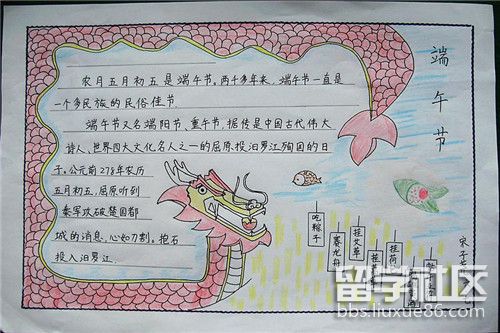 端午节
农月五月初五是端午节。两千多年来,端午节一直是
一个多民族的民俗佳节
端午节又名端阳节、重午节,据传是中国古代伟大
诗人、世界四大文化名人之一的屈原投汨罗江殉国的日
子。公元前278年农历
五月初五,屈原听到
秦军攻破楚国都
城的消息,心如刀割。抱石
投入汨罗江。
吃粽子
赛龙舟
挂艾草
挂荷
宋子
留学社区
bbs.liuxue86.com